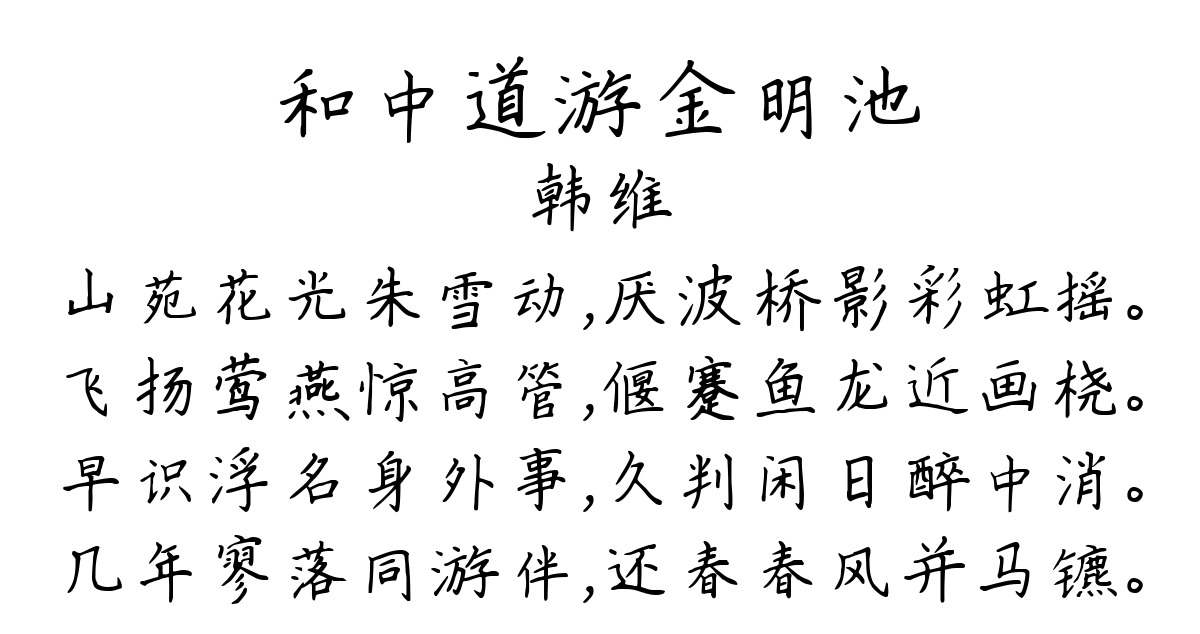 和中道游金明池
韩维
山苑花光朱雪动,厌波桥影彩虹摇。
飞扬莺燕惊高管,偃蹇鱼龙近画桡。
早识浮名身外事,久判闲日醉中消。
几年寥落同游伴,还春春风并马镳。